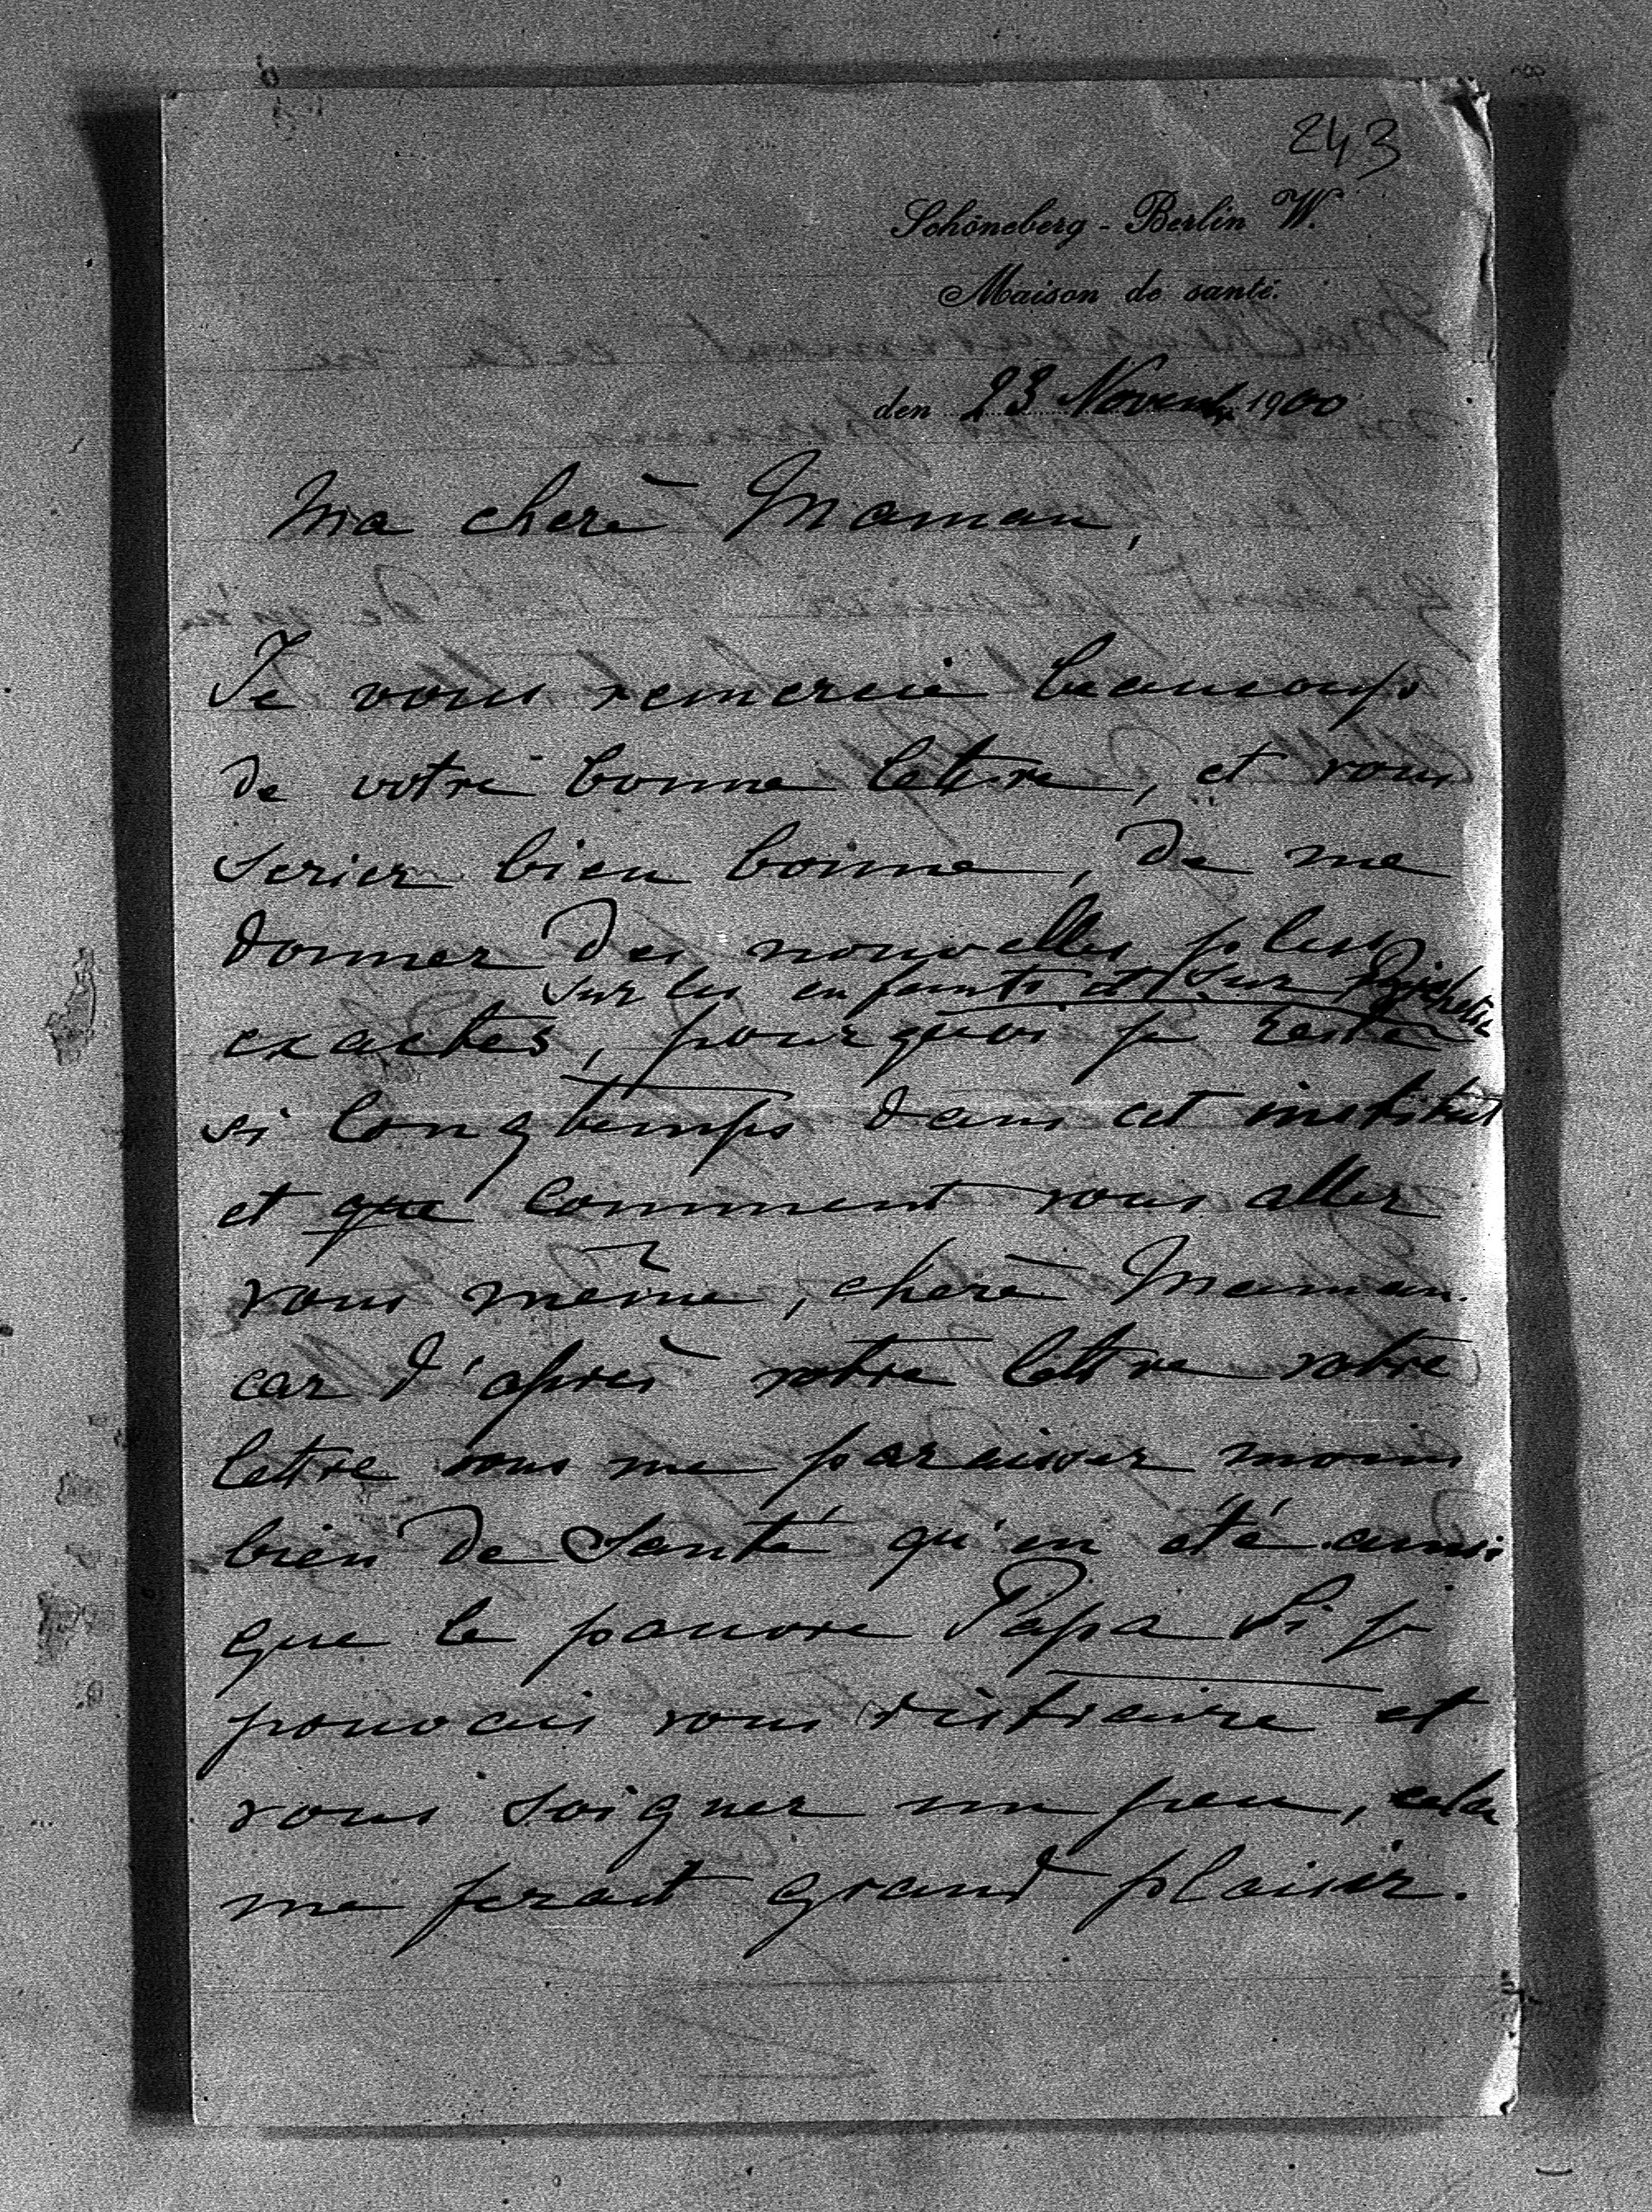 243
Schöneberg - Berlin W.
Maison de santé.
den 23 Novemb. 1900
Ma chère Maman,
Je vous remercie beaucoup
de votre bonne lettre, et vous
seriez bien bonne, de me
donner des nouvelles plus
sur les enfants et sur
exactes, pourquoi je reste
si longtemps dans cet institut
et que comment vous allez
vous même, chère Maman.
car d'après votre lettre votre
lettre vous me paraissez moins
bien de Santé qu'en été ainsi
que le pauvre Papa Si je
pouvais vous distraire et
vous soigner un peu, cela
me ferait grand plaisir.